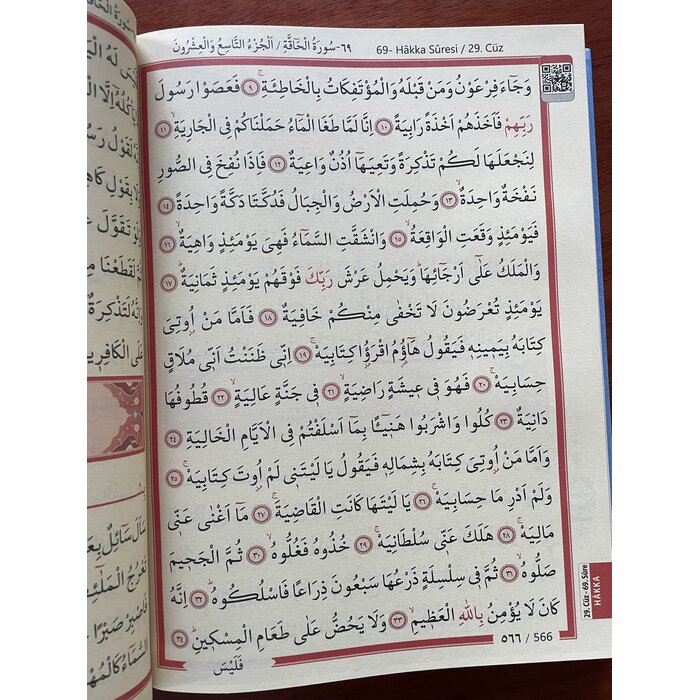 ٦٩-سُورَةُ الْحَاقَّةِ / اَلْجُزْءُ التَّاسِعُ وَالْعِشْرُونَ 69- Hâkka Sûresi / 29. Cüz
وَجَٓاءَ فِرْعَوْنُ وَمَنْ قَبْلَهُ وَالْمُؤْتَفِكَاتُ بِالْخَاطِئَةِۚ ﴿٩﴾ فَعَصَوْا رَسُولَ
رَبِّهِمْ فَاَخَذَهُمْ اَخْذَةً رَابِيَةً ﴿١٠﴾ اِنَّا لَمَّا طَغَا الْمَٓاءُ حَمَلْنَاكُمْ فِي الْجَارِيَةِۙ ﴿١١﴾
لِنَجْعَلَهَا لَكُمْ تَذْكِرَةً وَتَعِيَهَٓا اُذُنٌ وَاعِيَةٌ ﴿١٢﴾ فَاِذَا نُفِخَ فِي الصُّورِ
نَفْخَةٌ وَاحِدَةٌۙ ﴿١٣﴾ وَحُمِلَتِ الْاَرْضُ وَالْجِبَالُ فَدُكَّتَا دَكَّةً وَاحِدَةًۙ ﴿١٤﴾
فَيَوْمَئِذٍ وَقَعَتِ الْوَاقِعَةُۙ ﴿١٥﴾ وَانْشَقَّتِ السَّمَٓاءُ فَهِيَ يَوْمَئِذٍ وَاهِيَةٌۙ ﴿١٦﴾
وَالْمَلَكُ عَلٰٓى اَرْجَٓائِهَاۜ وَيَحْمِلُ عَرْشَ رَبِّكَ فَوْقَهُمْ يَوْمَئِذٍ ثَمَانِيَةٌۜ ﴿١٧﴾
يَوْمَئِذٍ تُعْرَضُونَ لَا تَخْفٰى مِنْكُمْ خَافِيَةٌ ﴿١٨﴾ فَاَمَّا مَنْ اُو۫تِيَ
كِتَابَهُ بِيَمِينِه۪ فَيَقُولُ هَٓاؤُ۬مُ اقْرَؤُ۫ا كِتَابِيَهْۚ ﴿١٩﴾ اِنّ۪ي ظَنَنْتُ اَنّ۪ي مُلَاقٍ
حِسَابِيَهْۚ ﴿٢٠﴾ فَهُوَ ف۪ي ع۪يشَةٍ رَاضِيَةٍۙ ﴿٢١﴾ ف۪ي جَنَّةٍ عَالِيَةٍۙ ﴿٢٢﴾ قُطُوفُهَا
دَانِيَةٌ ﴿٢٣﴾ كُلُوا وَاشْرَبُوا هَن۪ٓيـًٔا بِمَٓا اَسْلَفْتُمْ فِي الْاَيَّامِ الْخَالِيَةِ ﴿٢٤﴾
وَاَمَّا مَنْ اُو۫تِيَ كِتَابَهُ بِشِمَالِه۪ فَيَقُولُ يَا لَيْتَن۪ي لَمْ اُو۫تَ كِتَابِيَهْۚ ﴿٢٥﴾
وَلَمْ اَدْرِ مَا حِسَابِيَهْۚ ﴿٢٦﴾ يَا لَيْتَهَا كَانَتِ الْقَاضِيَةَۚ ﴿٢٧﴾ مَٓا اَغْنٰى عَنّ۪ي
مَالِيَهْۚ ﴿٢٨﴾ هَلَكَ عَنّ۪ي سُلْطَانِيَهْۚ ﴿٢٩﴾ خُذُوهُ فَغُلُّوهُۙ ﴿٣٠﴾ ثُمَّ الْجَح۪يمَ
صَلُّوهُۙ ﴿٣١﴾ ثُمَّ ف۪ي سِلْسِلَةٍ ذَرْعُهَا سَبْعُونَ ذِرَاعًا فَاسْلُكُوهُۜ ﴿٣٢﴾ اِنَّهُ
كَانَ لَا يُؤْمِنُ بِاللّٰهِ الْعَظ۪يمِۙ ﴿٣٣﴾ وَلَا يَحُضُّ عَلٰى طَعَامِ الْمِسْك۪ينِۜ ﴿٣٤﴾
٥٦٦ / 566
فَلَيْسَ
29. Cüz - 69. Sûre
HÂKKA